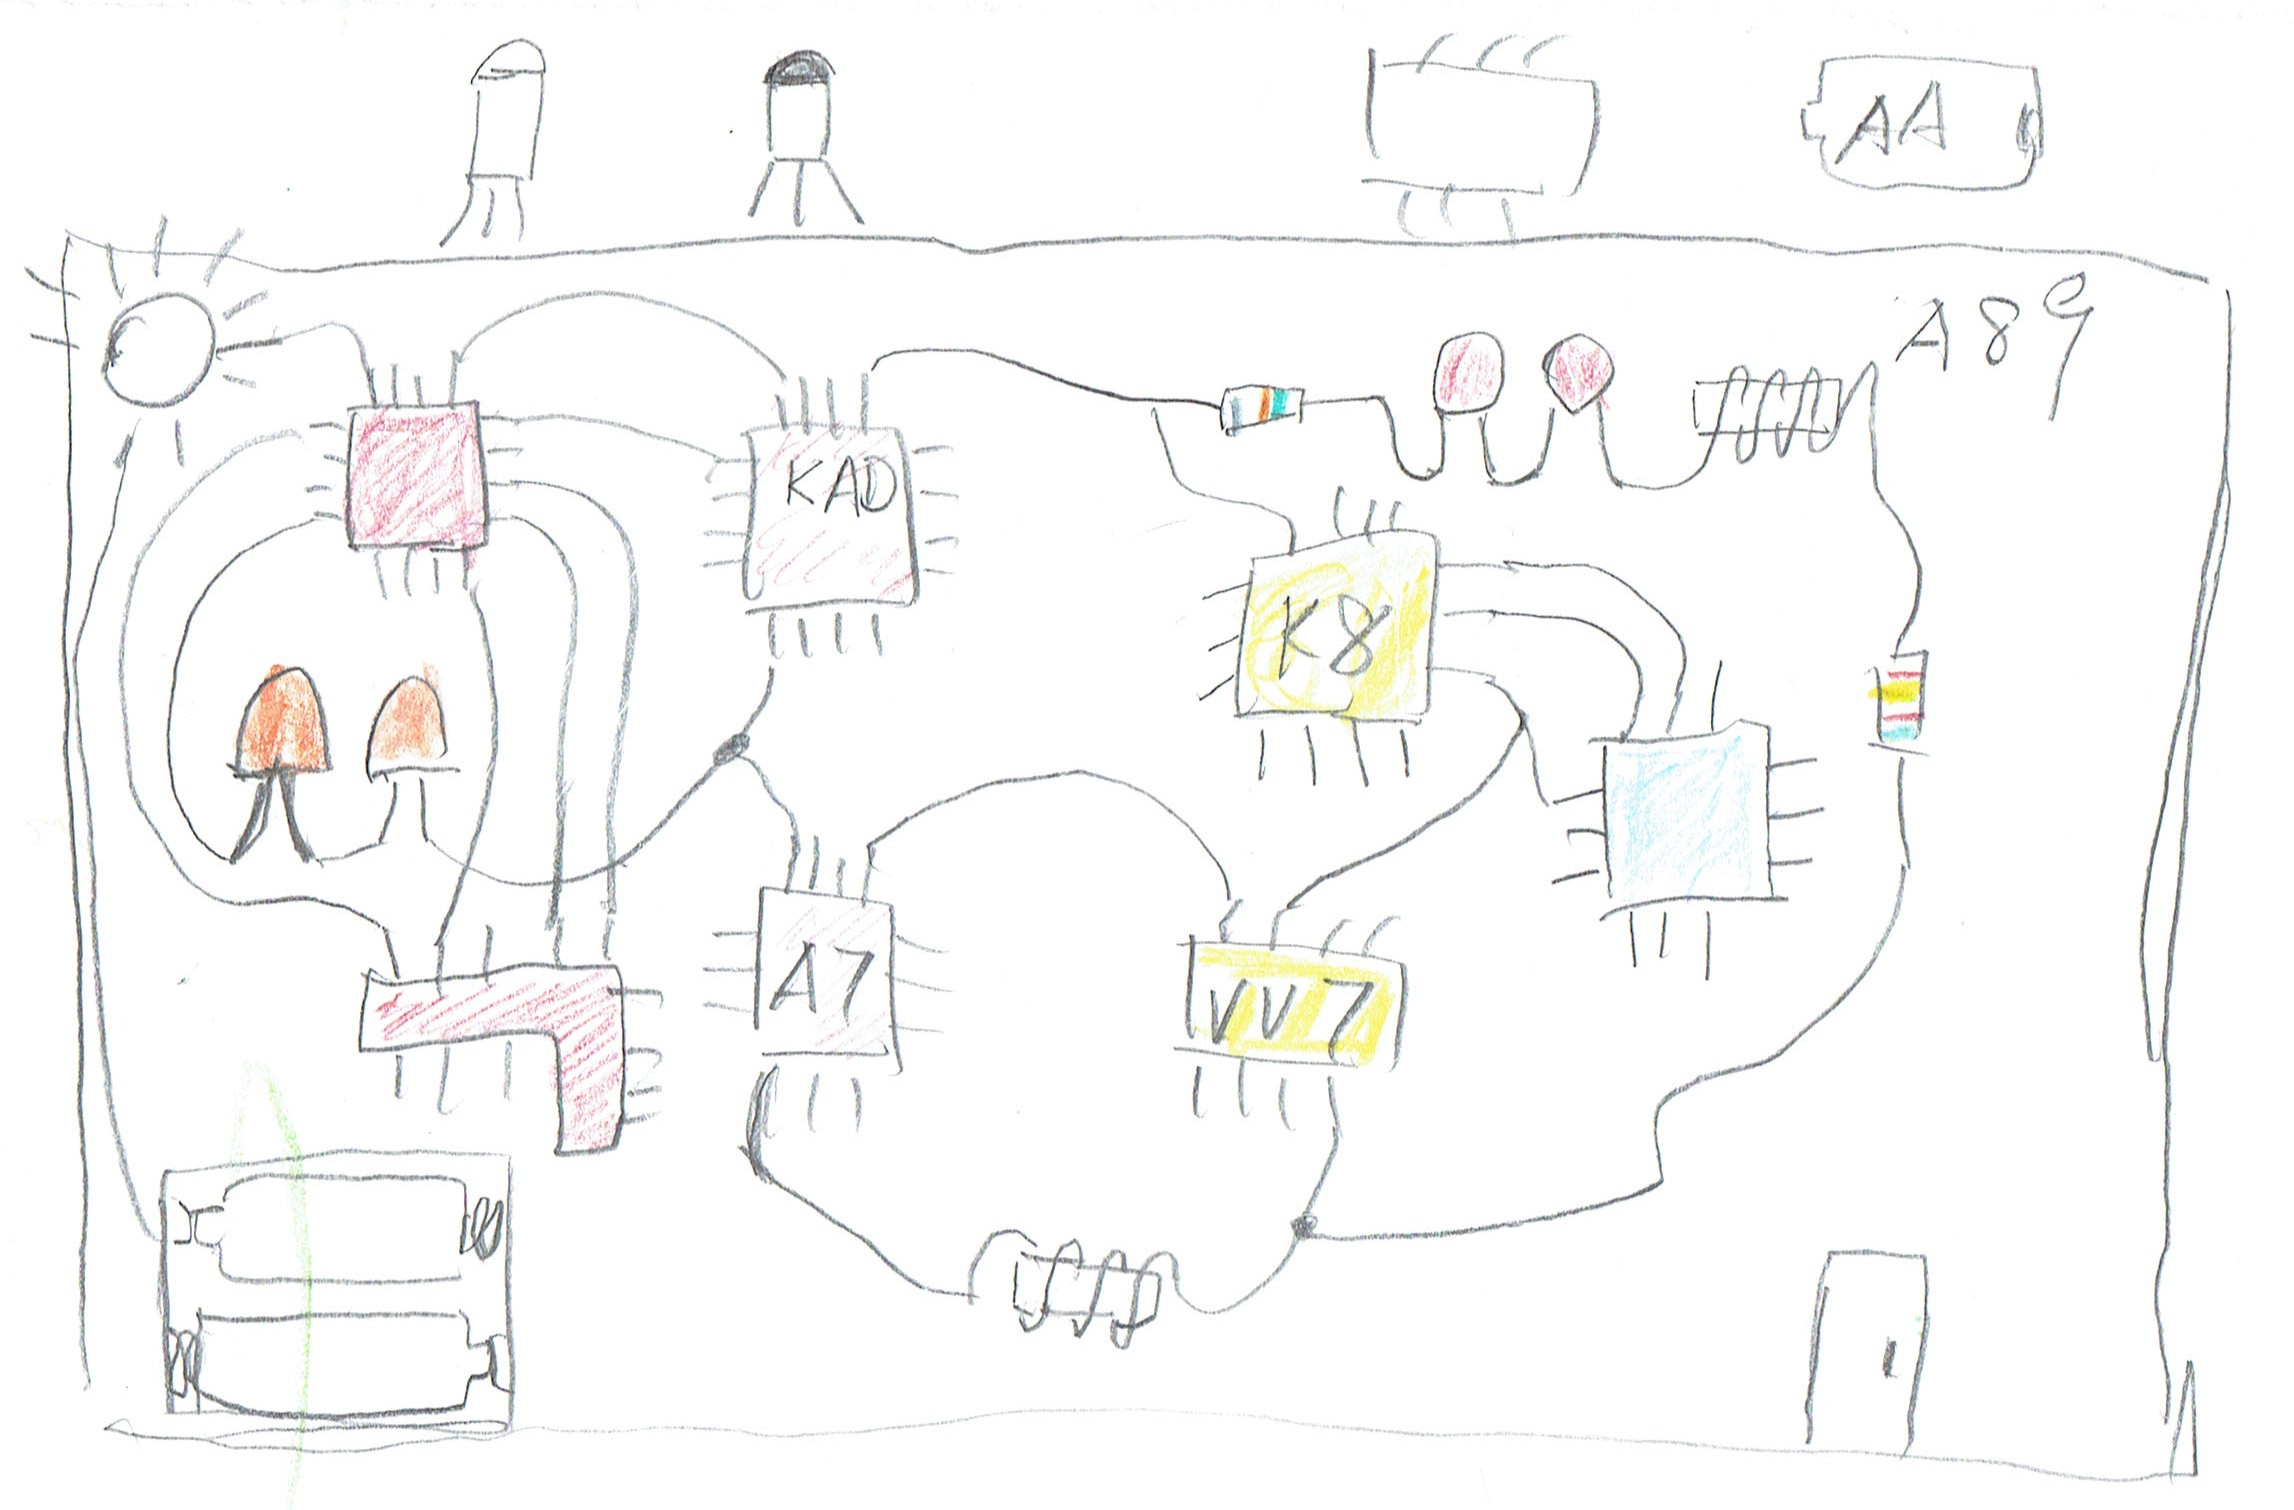 AA
A89
KAD
K8
A7
VV7